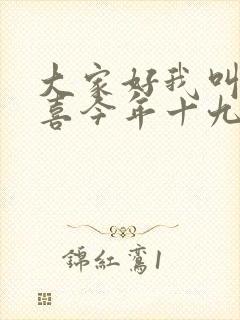 大家好我叫
喜今年十九
錦紅鸞1